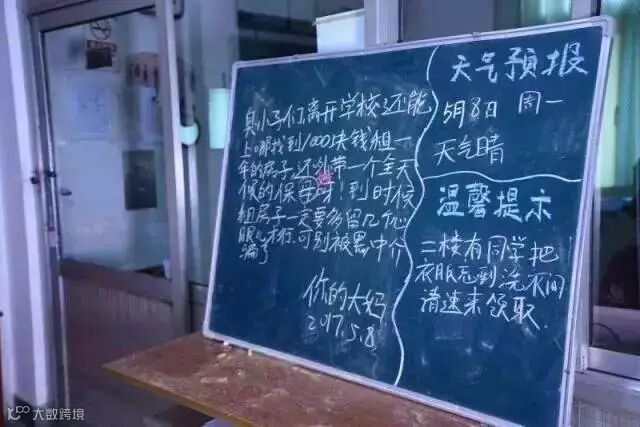 臭小子们,离开学校还能
上哪找到1000块钱租一
年的房子,还附带一个全天
候的保母呀!到时候
租房子一定要多留几个心
眼儿才行.可别被黑中介
骗了
你的大妈
2017.5.8
天气预报
5月8日 周一
天气晴
温馨提示
二楼有同学把
衣服忘到洗衣间
请速来领取.
大数跨境